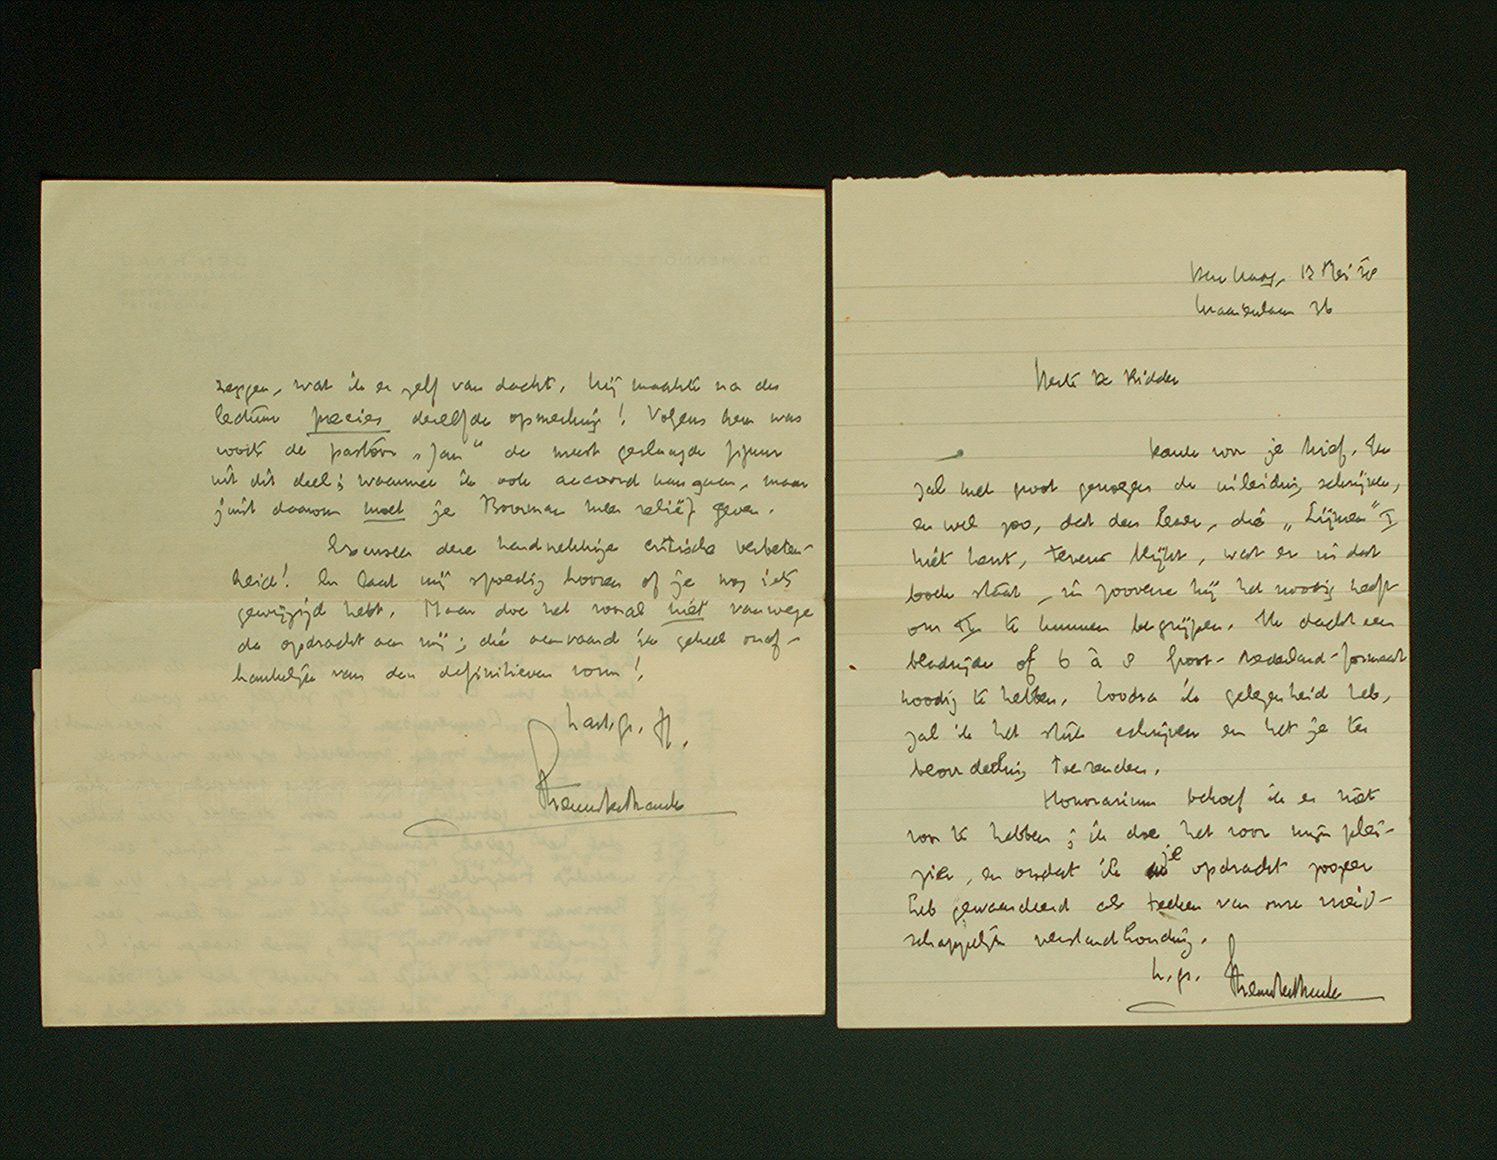 zeggen, wat ik er zelf van dacht. Hij maakte na de
lectuur precies dezelfde opmerking! Volgens hem was
voorts de pastoor „Jan" de meest geslaagde figuur
uit dit deel; waarmee ik ook accoord kan gaan, maar
juist daarom moet je Boorman meer reliëf geven.
deze hardnekkige critische verbeten-
heid! En laat mij spoedig hooren of je nog iets
gewijzigd hebt. Maar doe het vooral niét vanwege
de opdracht aan mij; die aanvaard ik geheel onaf-
hankelijk van den definitieven vorm!
hart. gr. H.
Den Haag, 13 Mei '38
36
Beste De Ridder
Dank voor je brief. Ik
zal met groot genoegen de inleiding schrijven,
en wel zoo, dat den lezer, die „Lijmen" I
niét kent, tevens blijkt, wat er in dat
boek staat, in zooverre hij het noodig heeft
om II te kunnen begrijpen. Ik dacht een
bladzijde of 6 à 8 Groot-Nederland-formaat
noodig te hebben. Zoodra ik gelegenheid heb,
zal ik het stuk schrijven en het je ter
beoordeeling toezenden.
Honorarium behoef ik er niet
voor te hebben; ik doe het voor mijn plei-
zier, en omdat ik je opdracht zoozeer
heb gewaardeerd als teeken van onze vriend-
schappelijke verstandhouding.
h. gr.